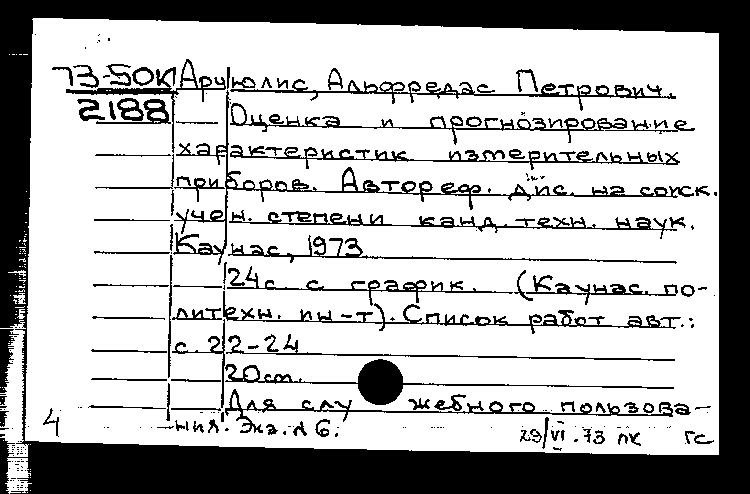 73-50К Арчюлис, Альфредас Петрович.
2188 Оценка и прогнозирование
характеристик измерительных
приборов. Автореф. дис. на соиск.
учен. степени канд. техн. наук.
Каунас, 1973
24с. с график. (Каунас. по-
литехн. ин-т). Список работ авт.:
с. 22-24
20см.
Для служебного пользова-
ния. Экз. № 6.
4 29/VI.73 ПК ГС